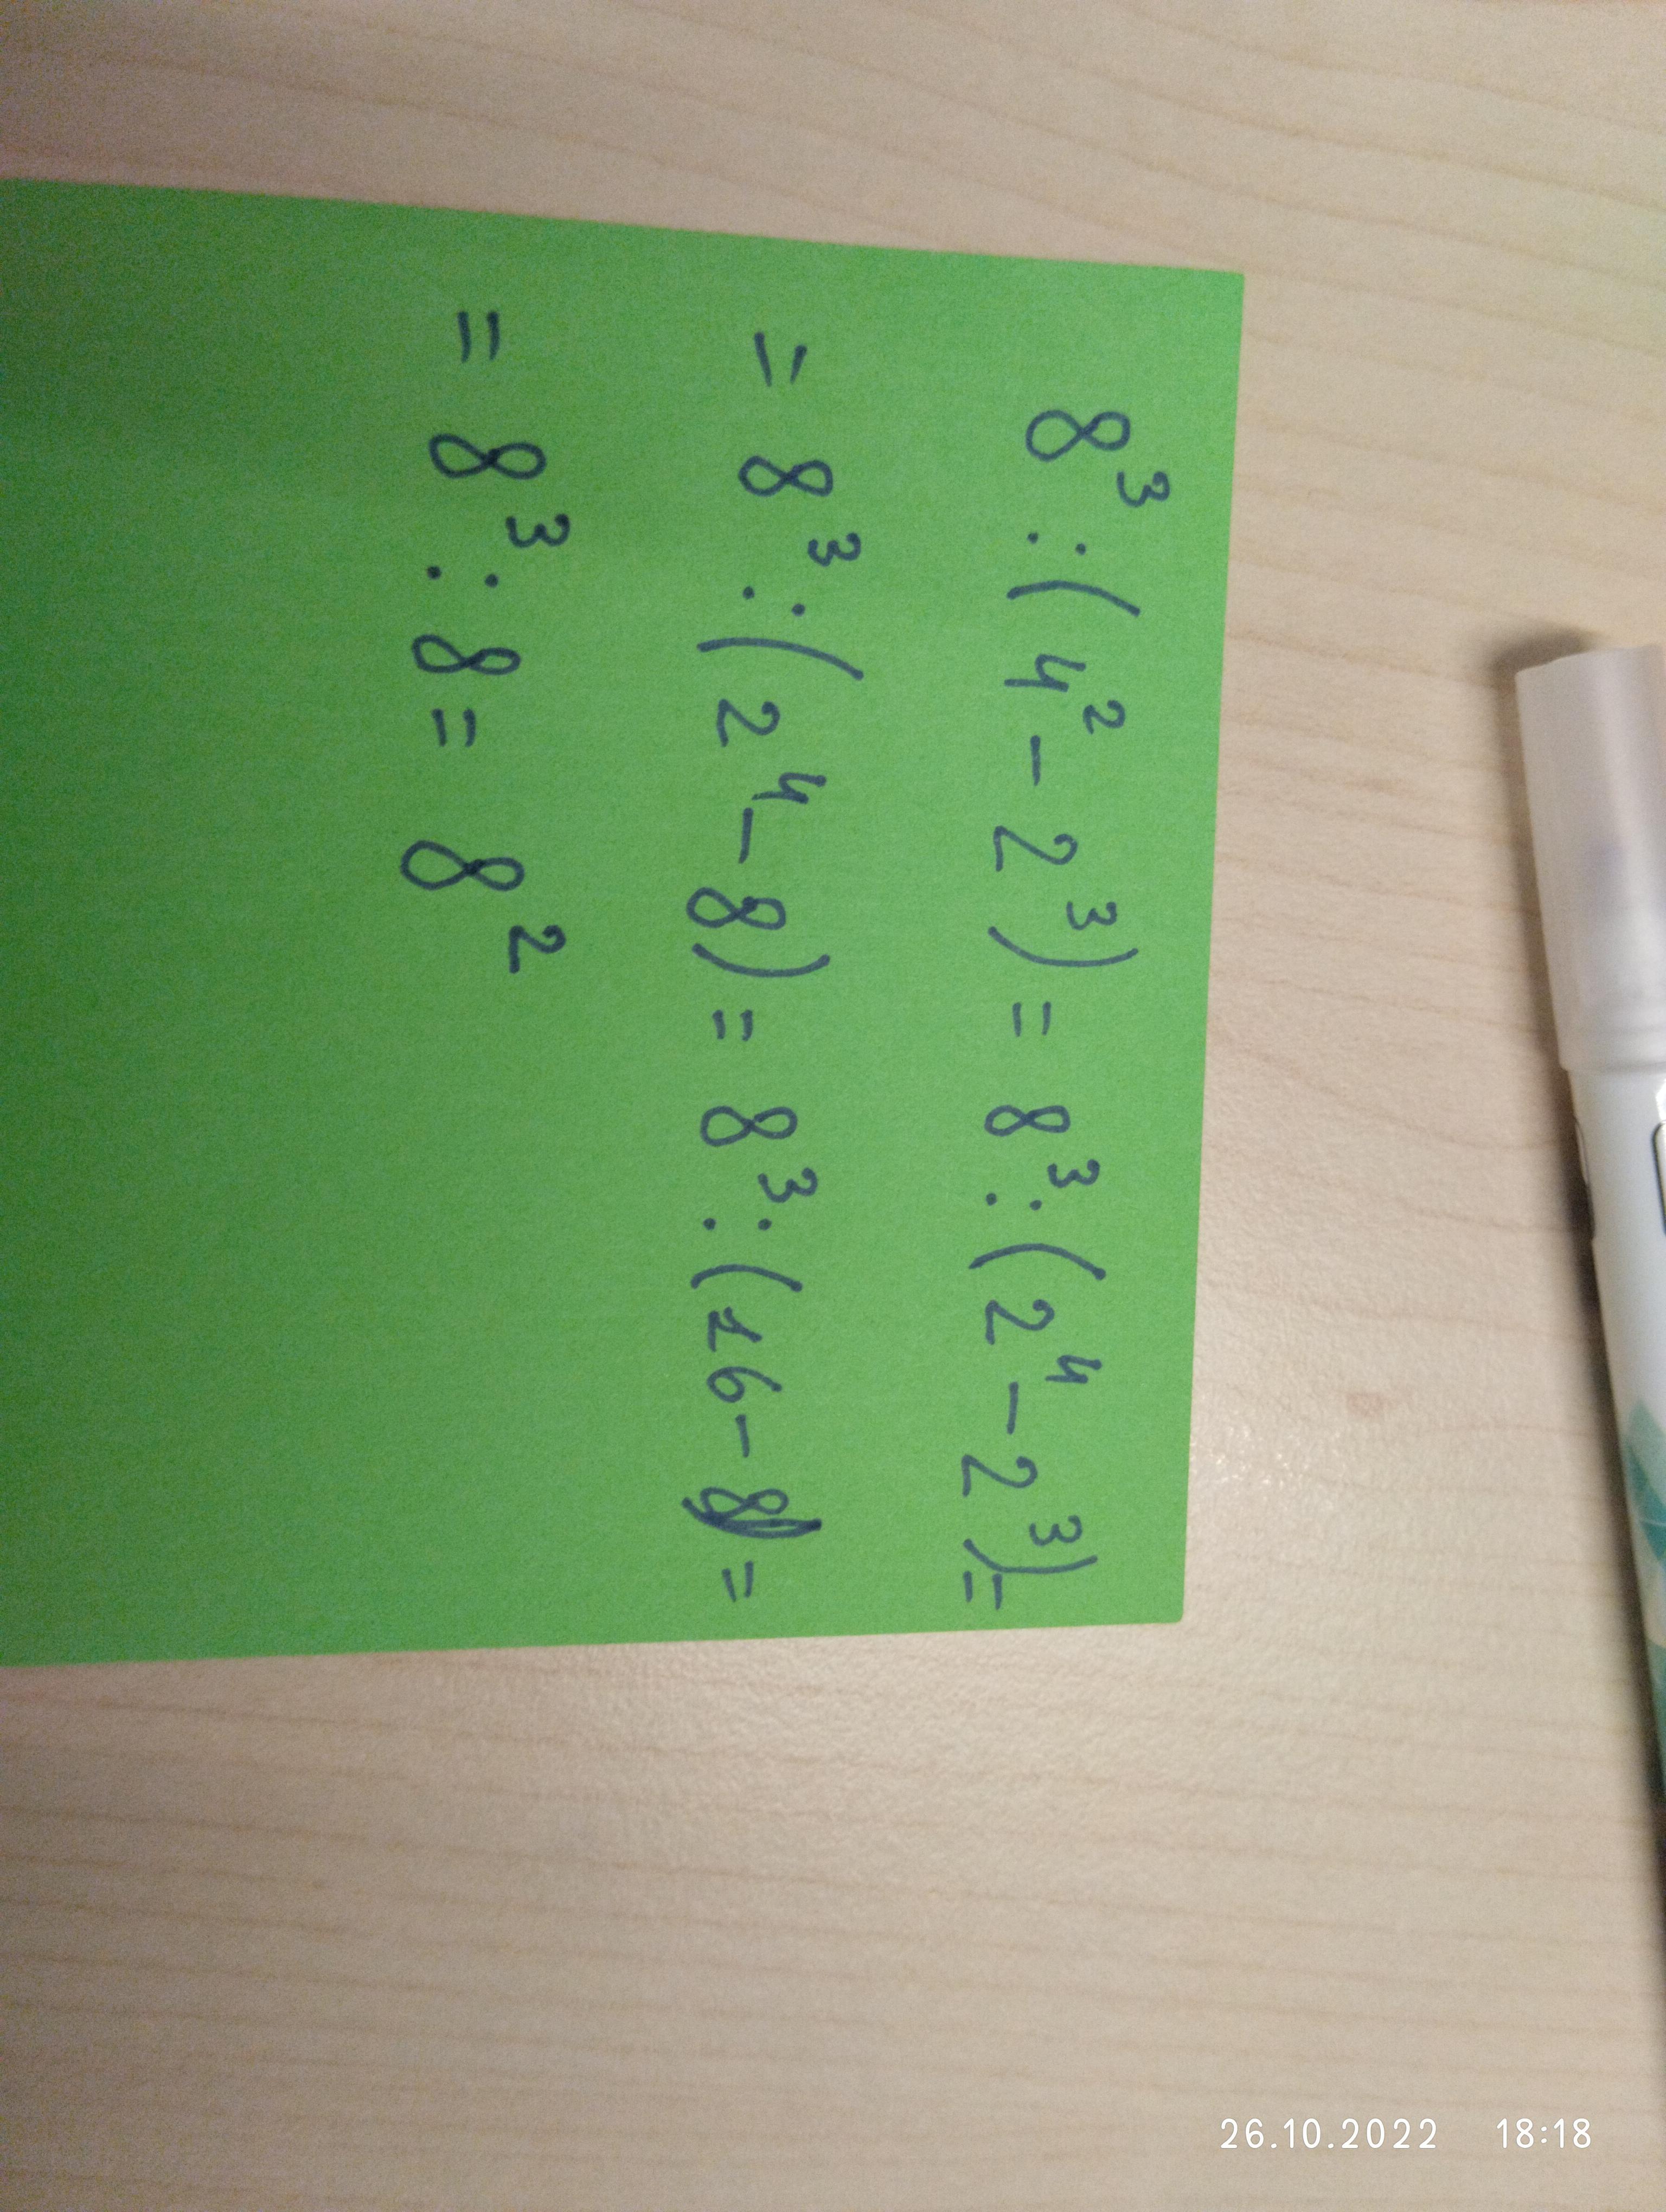 8³ : (4² - 2³) = 8³ : (2⁴ - 2³) =
= 8³ : (2⁴ - 8) = 8³ : (16 - 8) =
= 8³ : 8 = 8²
26.10.2022 18:18